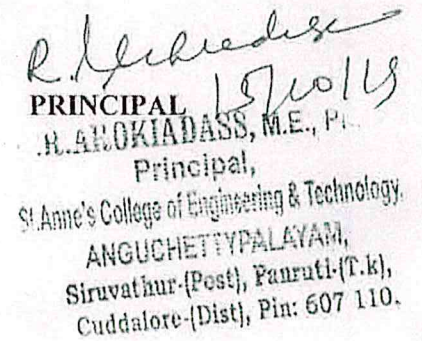 15/10/19
PRINCIPAL
R. AROKIADASS, M.E., P
Principal,
St.Anne's College of Engineering & Technology.
ANGUCHETTYPALAYAM,
Siruvathur-(Post), Panruti-(T.k),
Cuddalore-(Dist), Pin: 607 110.